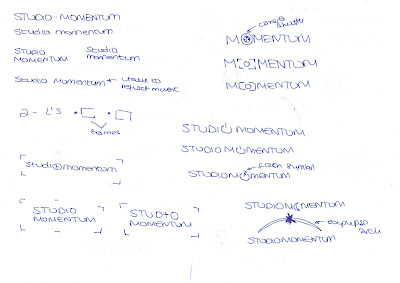 STUDIO · MOMENTUM
Studio momentum
STUDIO
MOMENTUM
Studio
momentum
Studio Momentum
reflect music
2 - L'S
frames
Studiomomentum
STUDIO
MOMENTUM
STUDIO
MOMENTUM
camera
shutter
MOMENTUM
M[O]MENTUM
M[O]MENTUM
STUDIO MOMENTUM
STUDIO MOMENTUM
symbol
STUDIO MOMENTUM
STUDIO MOMENTUM
STUDIO MOMENTUM